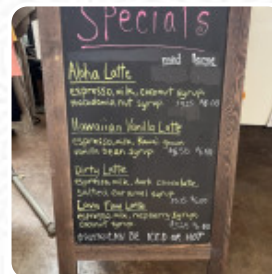 Specials
med large
Aloha Latte
espresso, milk, coconut syrup
macadamia nut syrup
Hawaiian Vanilla Latte
espresso, milk,
vanilla bean syrup
Dirty Latte
espresso, milk, dark chocolate
salted caramel syrup
espresso, milk, raspberry syrup
coconut syrup
CAN BE ICED OR HOT